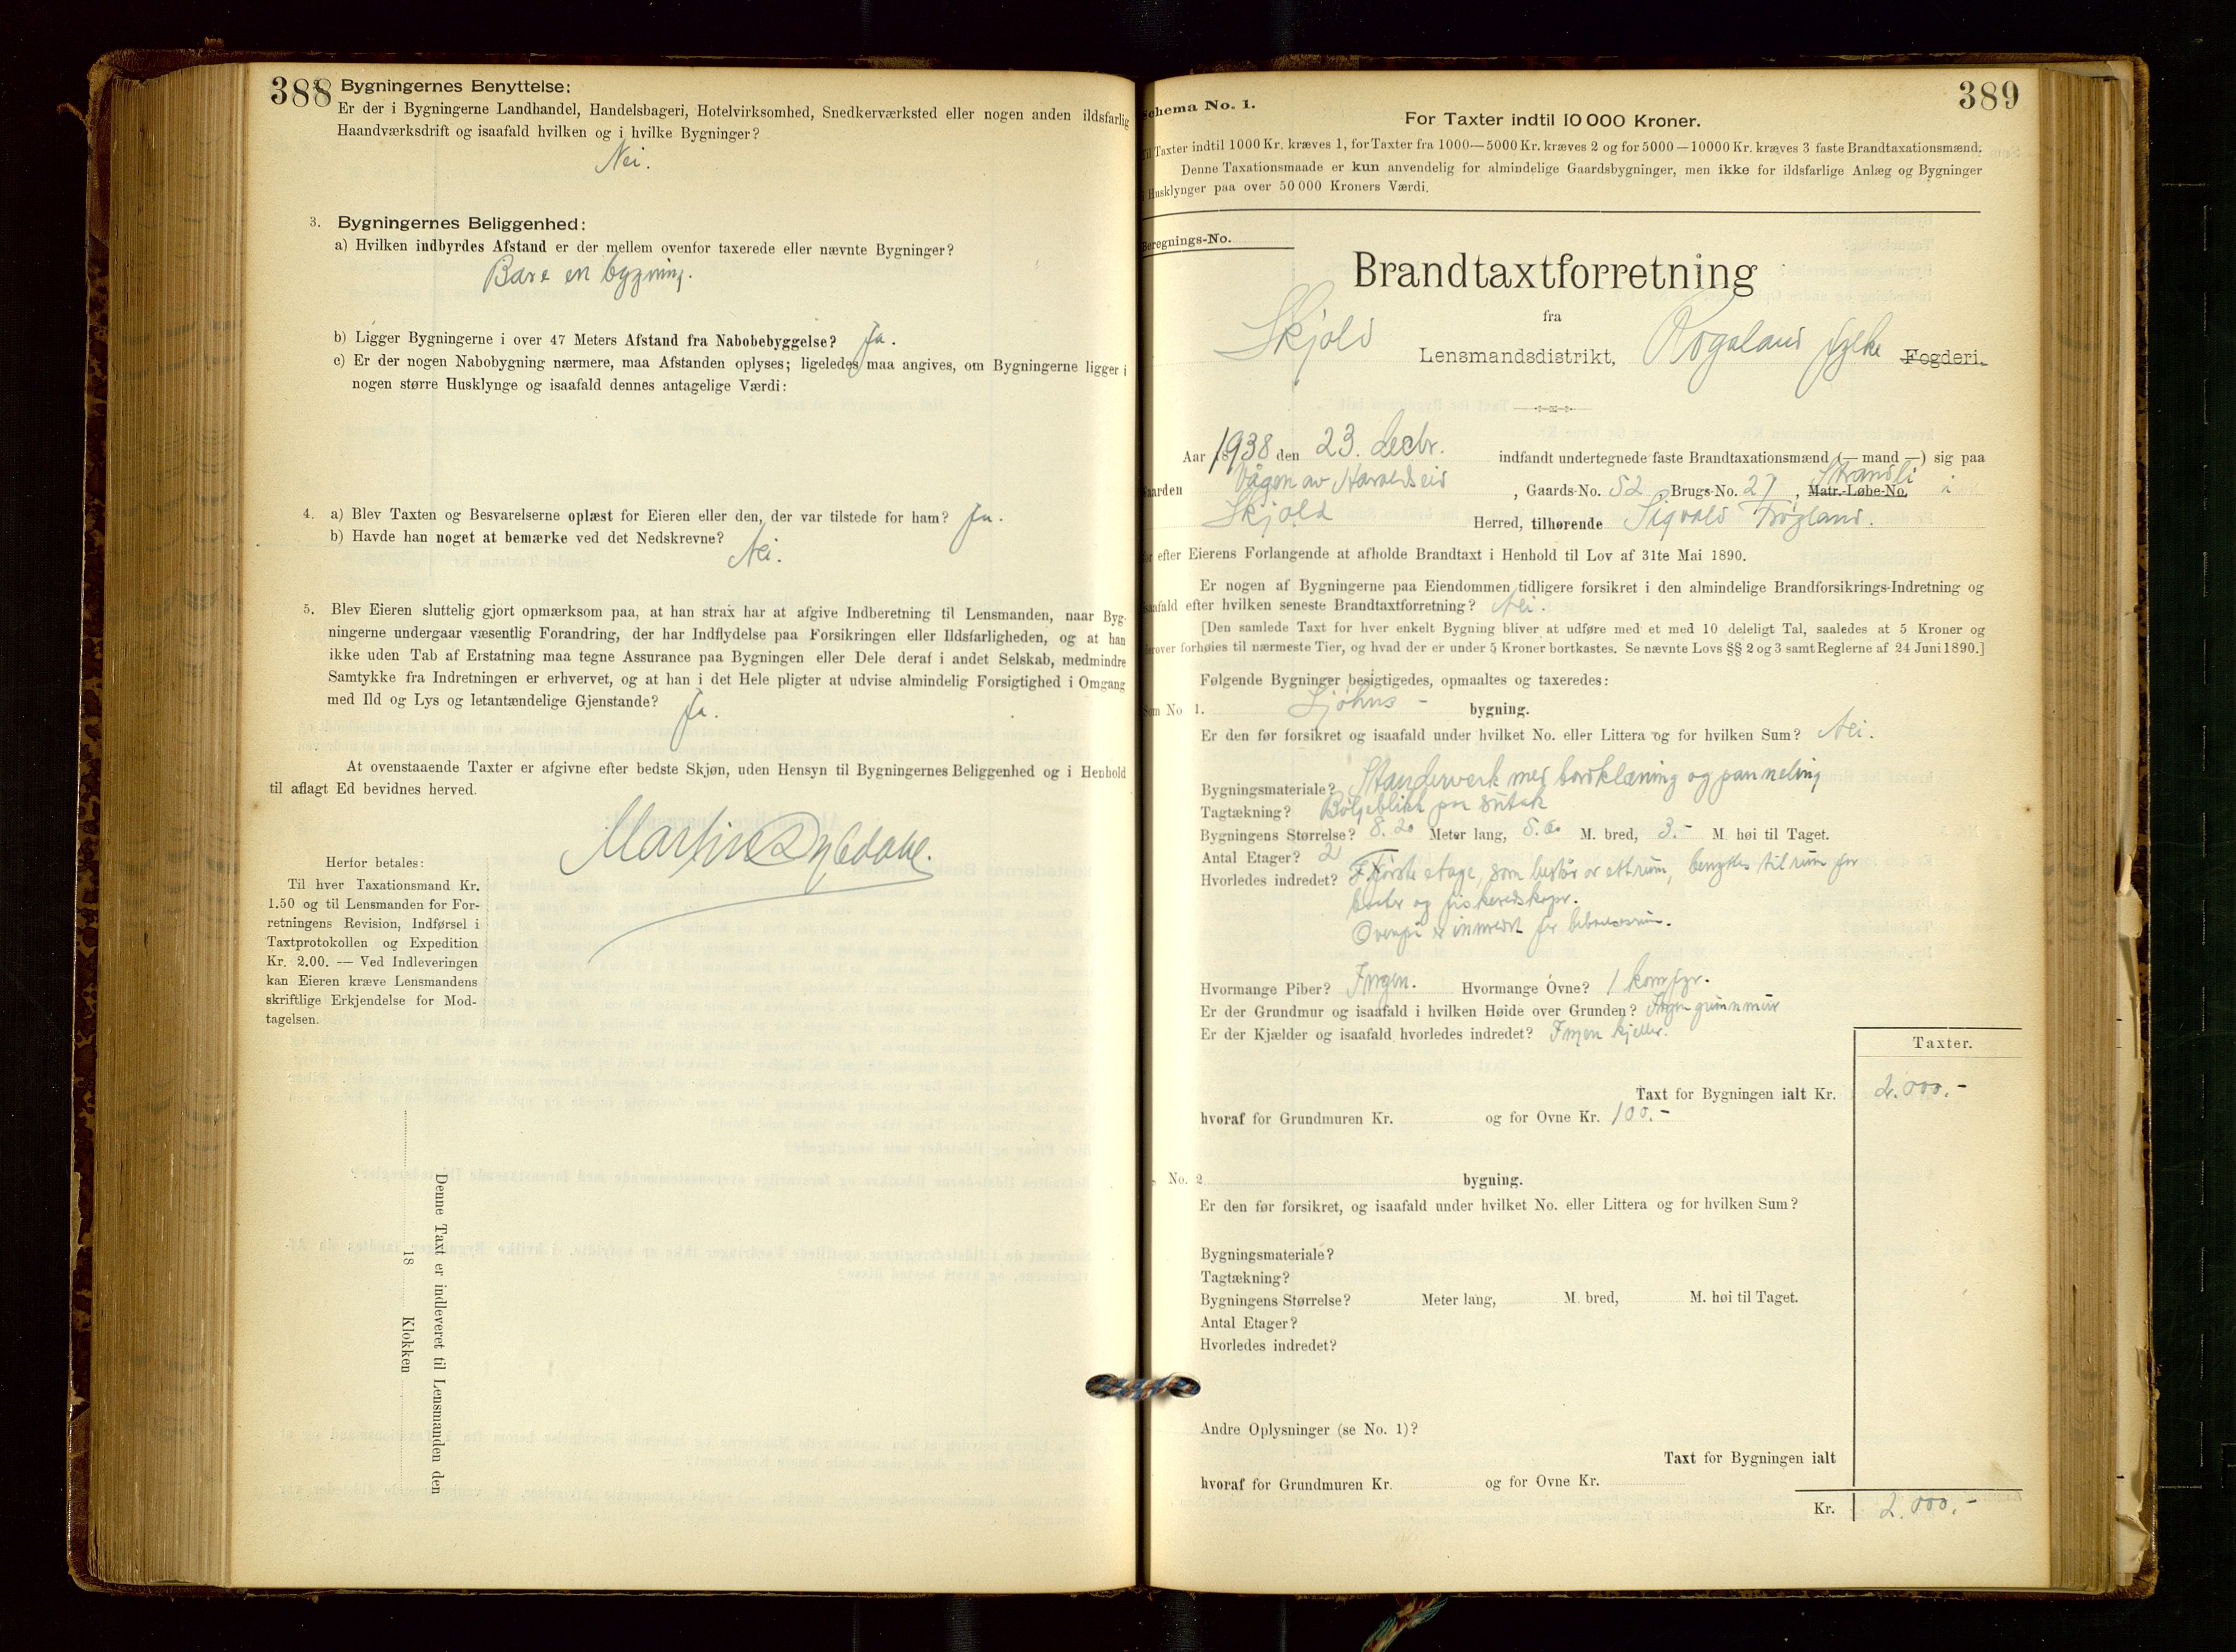 388
Bygningernes Benyttelse:
Er der i Bygningerne Landhandel, Handelsbageri, Hotelvirksomhed, Snedkerværksted eller nogen anden ildsfarlig
Haandværksdrift og isaafald hvilken og i hvilke Bygninger?
Nei.
3. Bygningernes Beliggenhed:
a) Hvilken indbyrdes Afstand er der mellem ovenfor taxerede eller nævnte Bygninger?
Bare en bygning.
b) Ligger Bygningerne i over 47 Meters Afstand fra Nabobebyggelse? Ja.
c) Er der nogen Nabobygning nærmere, maa Afstanden oplyses; ligeledes maa angives, om Bygningerne ligger i
nogen større Husklynge og isaafald dennes antagelige Værdi:
4. a) Blev Taxten og Besvarelserne oplæst for Eieren eller den, der var tilstede for ham? Ja.
b) Havde han noget at bemærke ved det Nedskrevne?
Nei.
5. Blev Eieren sluttelig gjort opmærksom paa, at han strax har at afgive Indberetning til Lensmanden, naar Byg-
ningerne undergaar væsentlig Forandring, der har Indflydelse paa Forsikringen eller Ildsfarligheden, og at han
ikke uden Tab af Erstatning maa tegne Assurance paa Bygningen eller Dele deraf i andet Selskab, medmindre
Samtykke fra Indretningen er erhvervet, og at han i det Hele pligter at udvise almindelig Forsigtighed i Omgang
med Ild og Lys og letantændelige Gjenstande?
Ja.
At ovenstaaende Taxter er afgivne efter bedste Skjøn, uden Hensyn til Bygningernes Beliggenhed og i Henhold
til aflagt Ed bevidnes herved.
Martin
Herfor betales:
Til hver Taxationsmand Kr.
1.50 og til Lensmanden for For-
retningens Revision, Indførsel i
Taxtprotokollen og Expedition
Kr. 2.00. — Ved Indleveringen
kan Eieren kræve Lensmandens
skriftlige Erkjendelse for Mod-
tagelsen.
Denne Taxt er indleveret til Lensmanden den
18 Klokken
389
Schema No. 1.
For Taxter indtil 10 000 Kroner.
Til Taxter indtil 1000 Kr. kræves 1, for Taxter fra 1000—5000 Kr. kræves 2 og for 5000—10000 Kr. kræves 3 faste Brandtaxationsmænd.
Denne Taxationsmaade er kun anvendelig for almindelige Gaardsbygninger, men ikke for ildsfarlige Anlæg og Bygninger
i Husklynger paa over 50 000 Kroners Værdi.
Beregnings-No.
Brandtaxtforretning
fra
Skjold Lensmandsdistrikt, Rogaland fylke Fogderi.
Aar 1938 den 23. decbr. indfandt undertegnede faste Brandtaxationsmænd (— mand —) sig paa
Gaarden Vågen av Haraldseid, Gaards-No. 52, Brugs-No. 27, Matr.-Løbe-No. Strandli i
Skjold Herred, tilhørende Sigvald Frøgland.
for efter Eierens Forlangende at afholde Brandtaxt i Henhold til Lov af 31te Mai 1890.
Er nogen af Bygningerne paa Eiendommen tidligere forsikret i den almindelige Brandforsikrings-Indretning og
isaafald efter hvilken seneste Brandtaxtforretning? Nei.
[Den samlede Taxt for hver enkelt Bygning bliver at udføre med et med 10 deleligt Tal, saaledes at 5 Kroner og
derover forhøies til nærmeste Tier, og hvad der er under 5 Kroner bortkastes. Se nævnte Lovs §§ 2 og 3 samt Reglerne af 24 Juni 1890.]
Følgende Bygninger besigtigedes, opmaaltes og taxeredes:
Som No 1. Sjøhus - bygning.
Er den før forsikret og isaafald under hvilket No. eller Littera og for hvilken Sum? Nei.
Bygningsmateriale? Standerverk med bordklæning og panneling
Tagtækning? Bølgeblikk på sutak
Bygningens Størrelse? 8.20 Meter lang, 5.60 M. bred, 3.- M høi til Taget.
Antal Etager? 2
Hvorledes indredet? Første etage, som består av ett rum, benyttes til rum for
båter og fiskeredskaper.
Ovenpå er innredet for beboelsesrum.
Hvormange Piber? Ingen. Hvormange Ovne? 1 komfyr.
Er der Grundmur og isaafald i hvilken Høide over Grunden? Ingen grunnmur
Er der Kjælder og isaafald hvorledes indredet? Ingen kjeller.
Taxter.
Taxt for Bygningen ialt Kr. 2.000.-
hvoraf for Grundmuren Kr. og for Ovne Kr. 100.-
No. 2 bygning.
Er den før forsikret, og isaafald under hvilket No. eller Littera og for hvilken Sum?
Bygningsmateriale?
Tagtækning?
Bygningens Størrelse? Meter lang, M. bred, M. høi til Taget.
Antal Etager?
Hvorledes indredet?
Andre Oplysninger (se No. 1)?
Taxt for Bygningen ialt
hvoraf for Grundmuren Kr. og for Ovne Kr.
Kr. 2.000.-